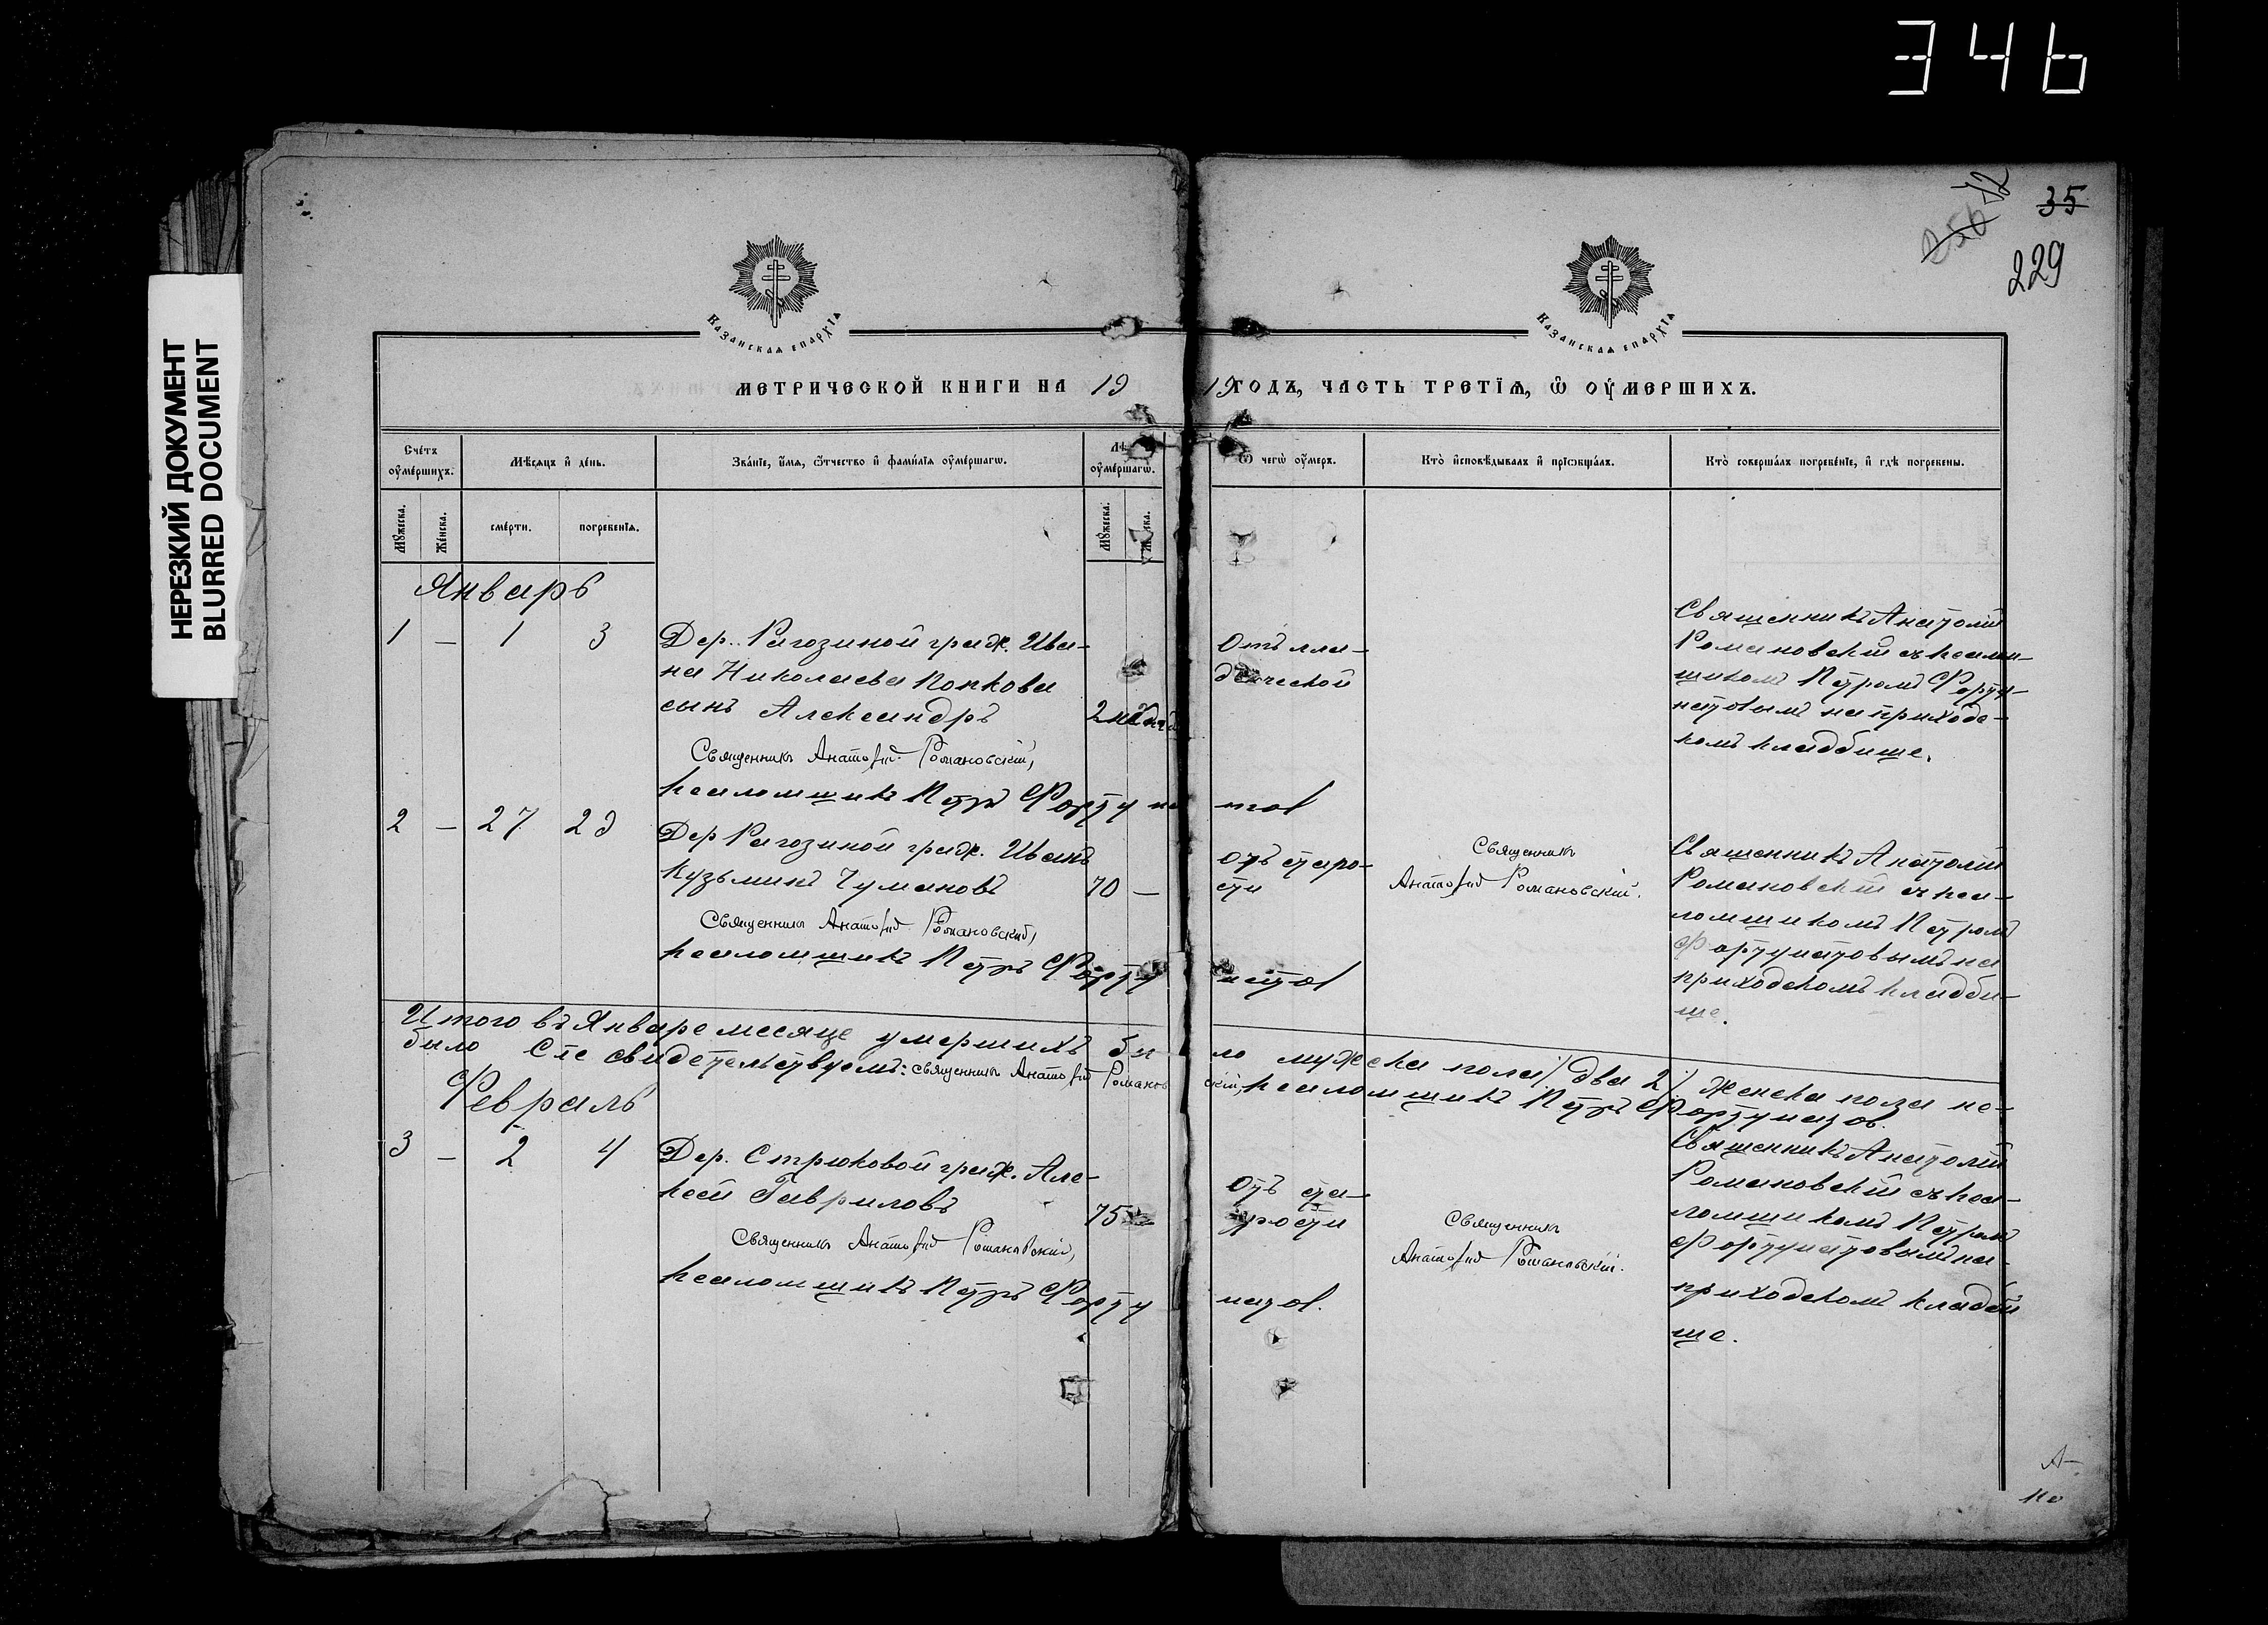 346
НЕРЕЗКИЙ ДОКУМЕНТ
BLURRED DOCUMENT
35
229
Казанская епархїя
Казанская епархїя
МЕТРИЧЕСКОЙ КНИГИ НА 1919 ГОДЪ, ЧАСТЬ ТРЕТЇѦ, Ѡ ОУМЕРШИХЪ.
Счетъ оумершихъ.
Мѣсяцъ и день.
Званїе, имя, ѿчество и фамилїя оумершагѡ.
Лѣ оумершагѡ.
Ѿ чегѡ оумеръ.
Кто исповѣдывалъ и прїобщалъ.
Кто совершалъ погребенїе, и гдѣ погребены.
Мужеска.
Женска.
смерти.
погребенїя.
Мужеска.
Январь
1 — 1 3
Дер. Рагозиной граж. Ива-
на Николаева Попкова
сынъ Александръ
Священникъ Анатолій Романовскій,
псаломщикъ Петръ Фортунатов
Отъ мла-
денческой
Священникъ Анатолій
Романовскій съ псалом-
щикомъ Петромъ Форту-
натовымъ на приходс-
комъ кладбище.
2 — 27 29
Дер Рагозиной граж. Иванъ
Кузьминъ Чумановъ
70 —
Священникъ Анатолій Романовскій,
псаломщикъ Петръ Фортунатов
Отъ старо-
сти
Священникъ
Анатолій Романовскій.
Священникъ Анатолій
Романовскій съ пса-
ломщикомъ Петромъ
Фортунатовымъ на
приходскомъ кладби-
ще.
Итого въ Январе месяце умершихъ было мужеска пола /два 2/ женска пола не-
было Сіе свидетельствуемъ: священникъ Анатолій Романовскій, псаломщикъ Петръ Фортунатов.
Февраль
3 — 2 4
Дер. Стрюковой граж. Але-
ксей Гавриловъ
75
Священникъ Анатолій Романовскій,
псаломщикъ Петръ Фортунатов.
Отъ ста-
рости
Священникъ
Анатолій Романовскій.
Священникъ Анатолій
Романовскій съ пса-
ломщикомъ Петромъ
Фортунатовымъ на
приходскомъ кладби
ще.